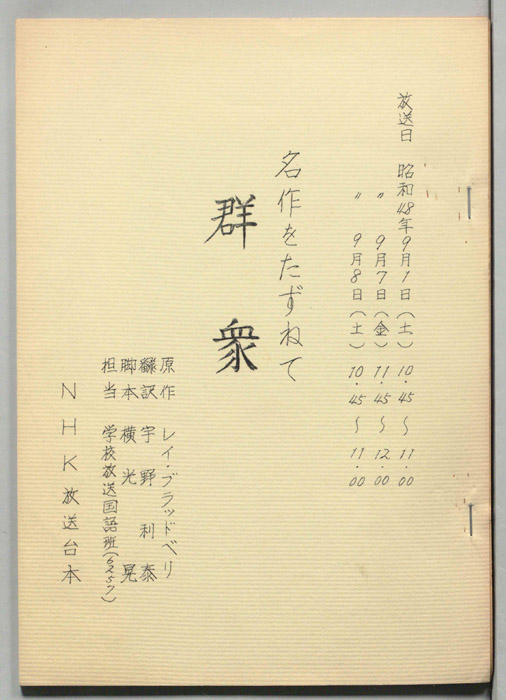 放送日 昭和48年9月1日(土) 10.45〜11.00
〃 9月7日(金) 11.45〜12.00
〃 9月8日(土) 10.45〜11.00
名作をたずねて
群衆
原作 レイ・ブラッドベリ
飜訳 宇野利泰
脚本 横光晃
担当 学校放送国語班(6257)
NHK放送台本